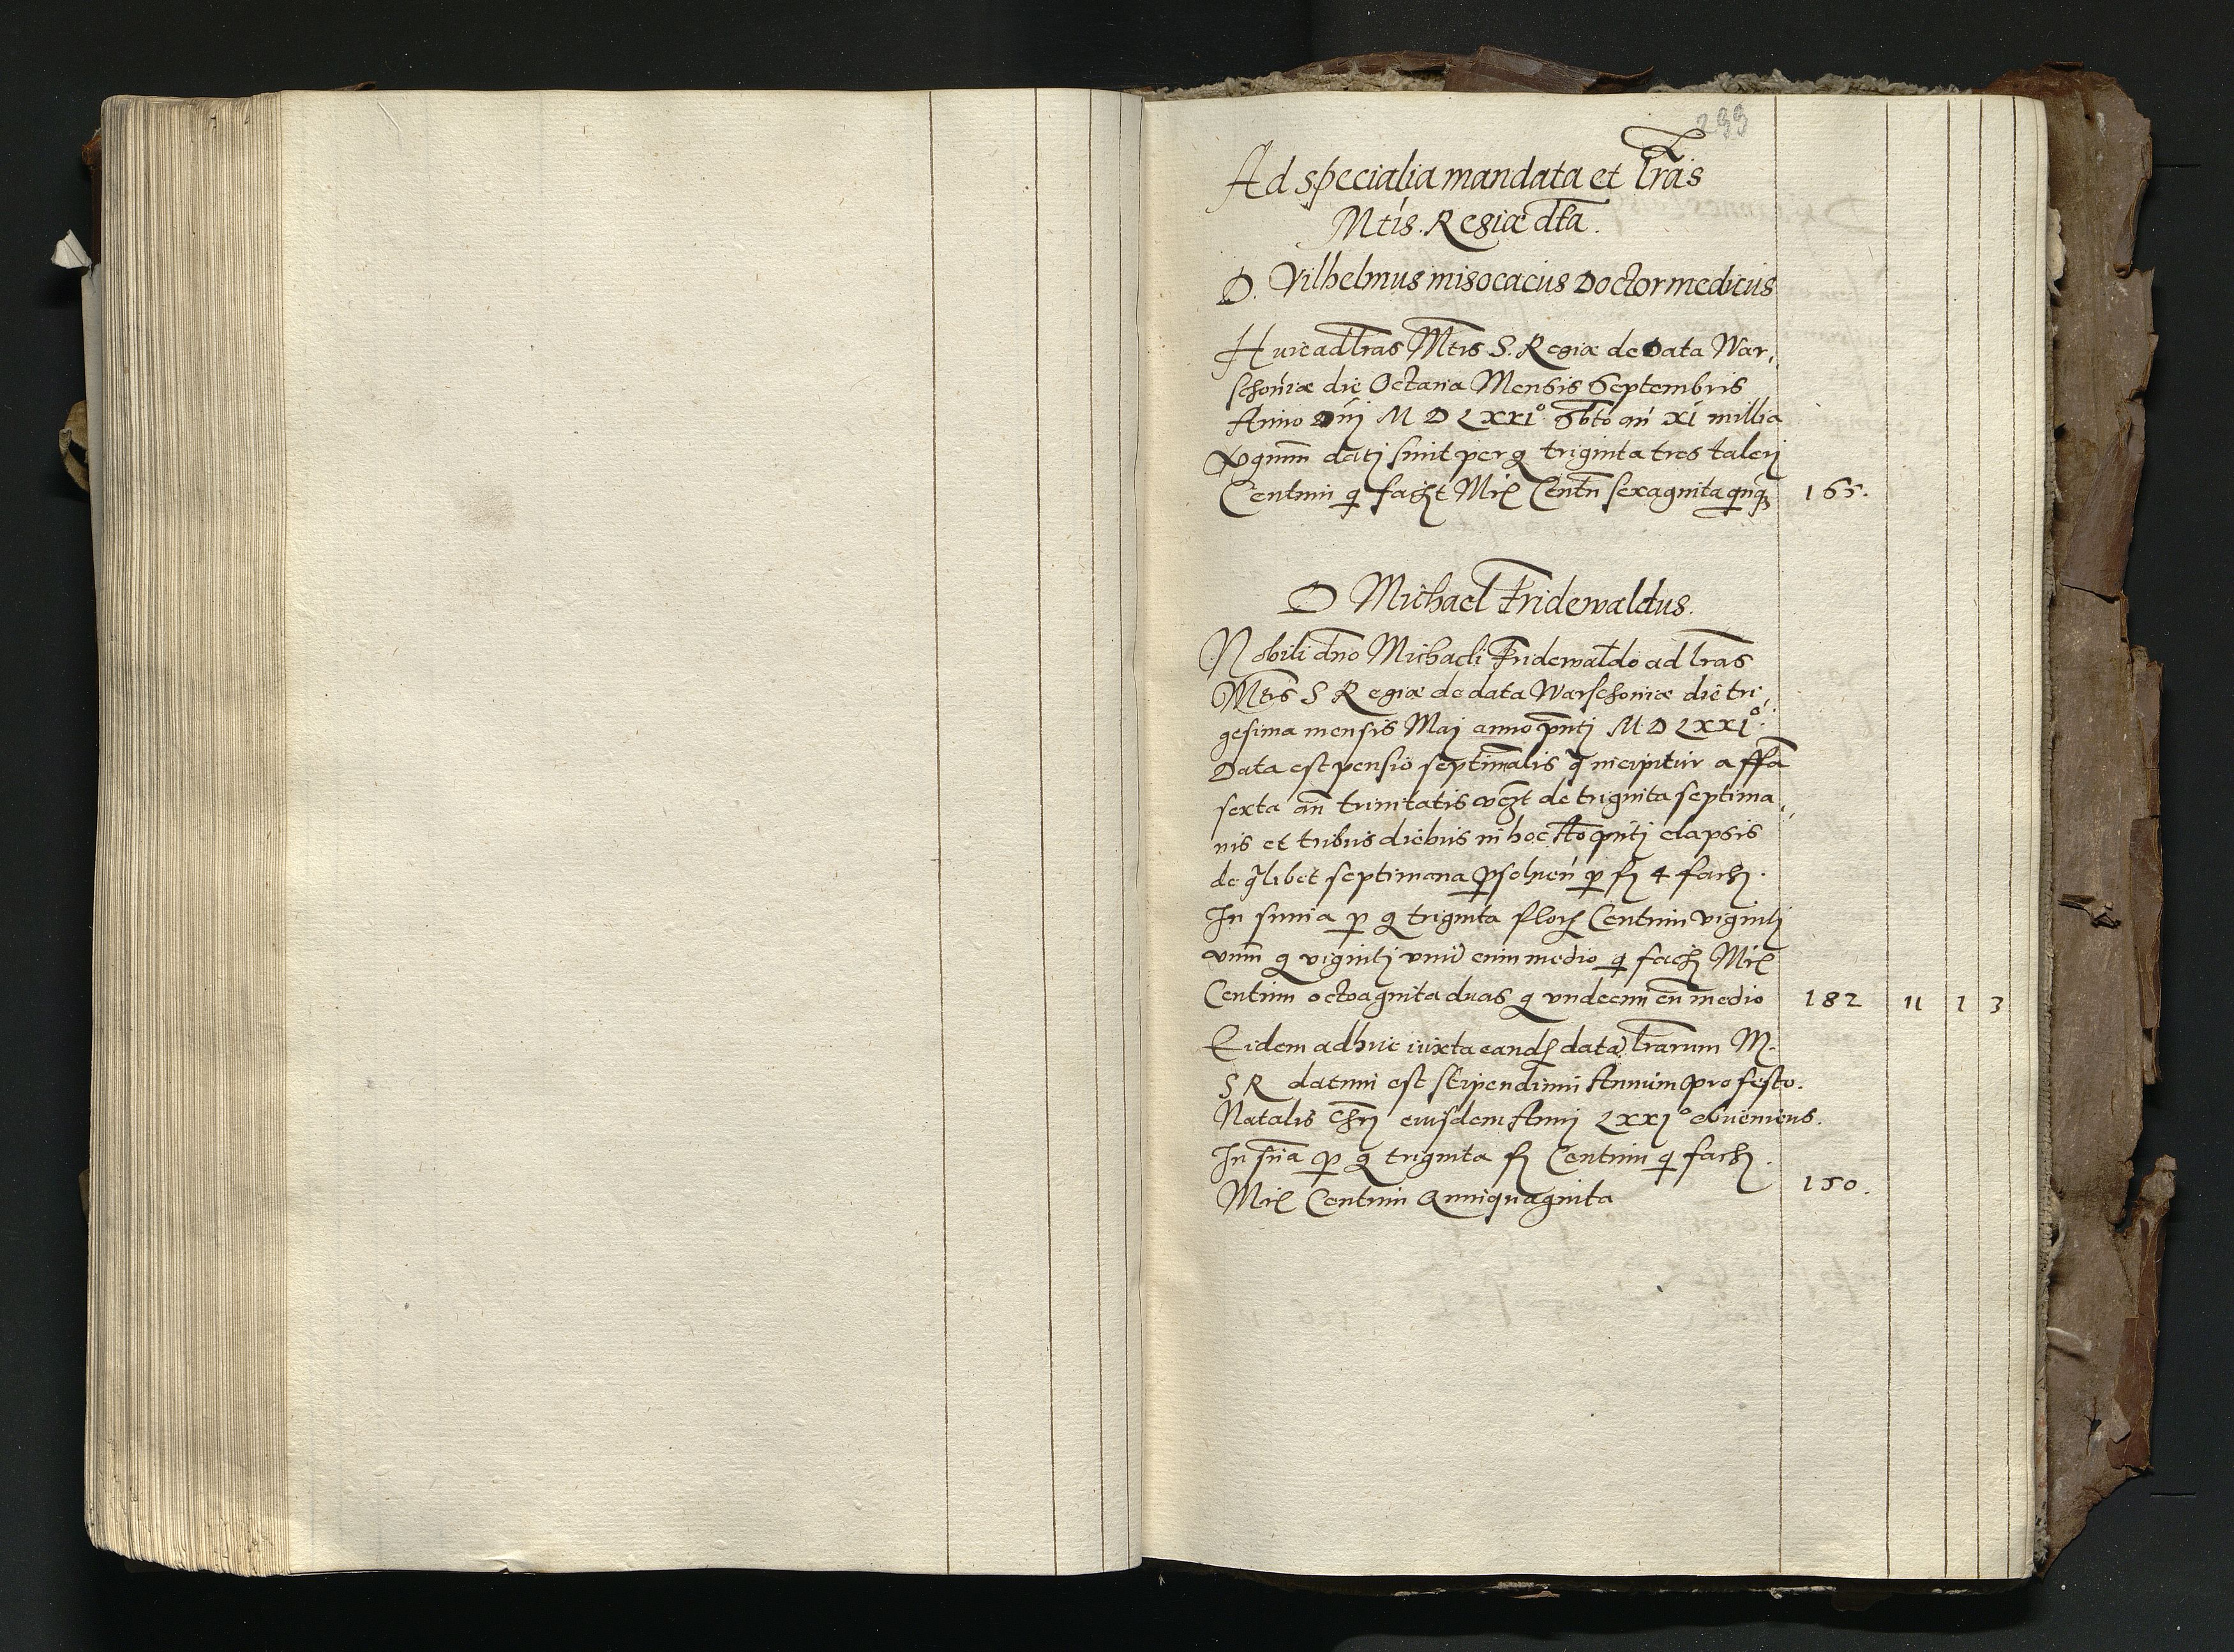 299
Ad specialia mandata et lr̃as
Mtis. Regiæ dťa.
D. Vilhelmus misocacius Doctor medicus
Huic ad lr̃as Mt̃is S. Regiæ de Data War,
schoniæ die Octaua Mensis Septembris
Anno Dnj M D LXXI°
datj sunt per triginta tres talerj
Centum q̨ fac̃t Mr̨ Centũ sexaginta 165.
D Michael Fridewaldus.
Nobili dño Michaeli Fridewaldo ad lr̃as
Mt̃is S Regiæ de data Warschoniæ die tri,
gesima mensis Maj anno p̃ntj M D LXXI°.
Data est pensio septimalis q̃ incipitur a
sexta an̄ trinitatis de triginta septima,
nis et tribus diebus in hoc p̃ntj elapsis
de q̃libet septimana ꝑ fl 4 fach.
In summa ꝑ g triginta flor Centum vigintj
vnum g vigintj vnū cum medio q̨ fach Mr̨
Centum octoaginta duas g vndecim cũ medio 182 11 1 3
Eidem adhuc iuxta eand data lr̃arum M.
S R datum est stipendium Annuum pro festo.
Natalis Chrj eiusdem Annj LXXI° obueniens.
In sũa ꝑ g triginta fl Centum q̨ fach.
Mr̨ Centum Quinquaginta 150.